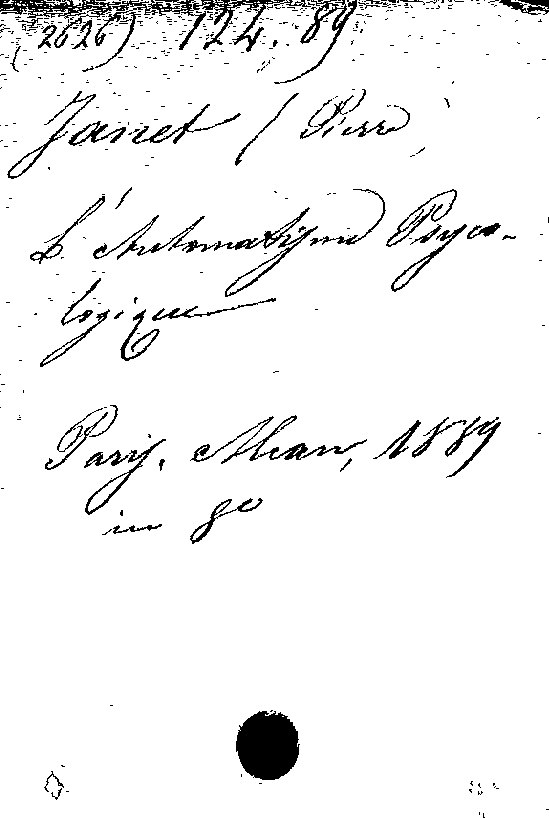 (2626) 124. 89
Janet (Pierre)
L'Automatisme Psyco-
logique
Paris, Alcan, 1889
in 8º